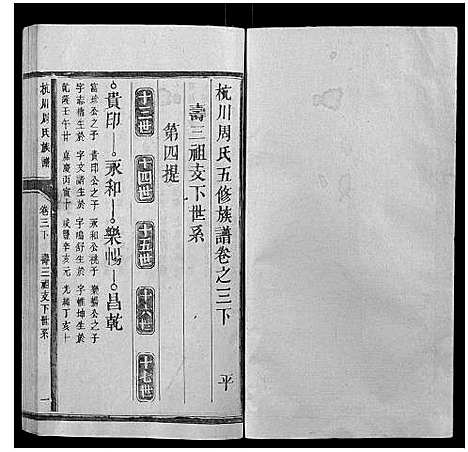 杭川周氏五修族譜卷之三下
平
壽三祖支下世系
第四提
十三世 十四世 十五世 十六世 十七世
貴印 永和 樂暢 昌乾
富球公之子 貴印公之子 永和公祧子 樂暢公之子
字志精生於 字文諸生於 字鳴舒生於 字帷坤生於
乾隆壬午廿 嘉慶丙寅十 咸豐辛亥元 光緒丁亥十
杭川周氏族譜
卷三下
壽三祖支下世系
一